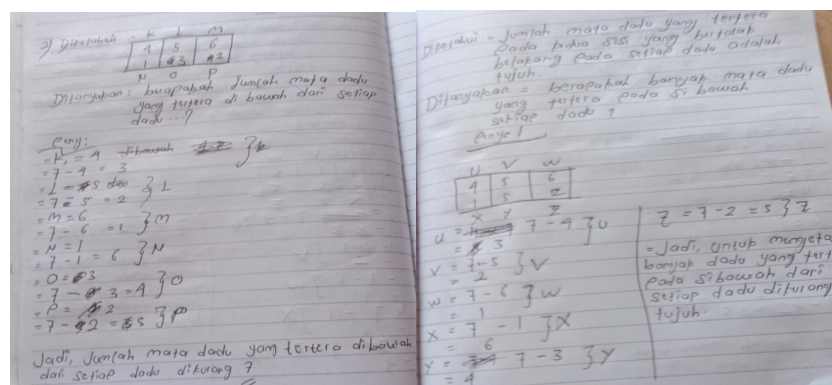 2) Diketahui : K L M
4 5 6
1 3 2
N O P
Ditanyakan : berapakah Jumlah mata dadu
yang tertera di bawah dari setiap
dadu ...?
Peny:
= K = 4 dibawah } K
= 7 - 4 = 3
= L = 5 } L
= 7 - 5 = 2
= M = 6 } M
= 7 - 6 = 1
= N = 1 } N
= 7 - 1 = 6
= O = 3 } O
= 7 - 3 = 4
= P = 2 } P
= 7 - 2 = 5
Jadi, Jumlah mata dadu yang tertera dibawah
dari setiap dadu dikurang 7
Diketahui = Jumlah mata dadu yang tertera
pada kedua sisi yang bertolak
belakang pada setiap dadu adalah
tujuh.
Ditanyakan = berapakah banyak mata dadu
yang tertera pada si bawah
setiap dadu ?
Penyel
U V W
4 5 6
1 5 2
X Y Z
U = 7 - 4 } U
= 3
V = 7 - 5 } V
= 2
W = 7 - 6 } W
= 1
X = 7 - 1 } X
= 6
Y = 7 - 3 } Y
= 4
Z = 7 - 2 = 5 } Z
= Jadi, untuk mengeta
banyak dadu yang tert
pada sibawah dari
setiap dadu dikurang
tujuh.